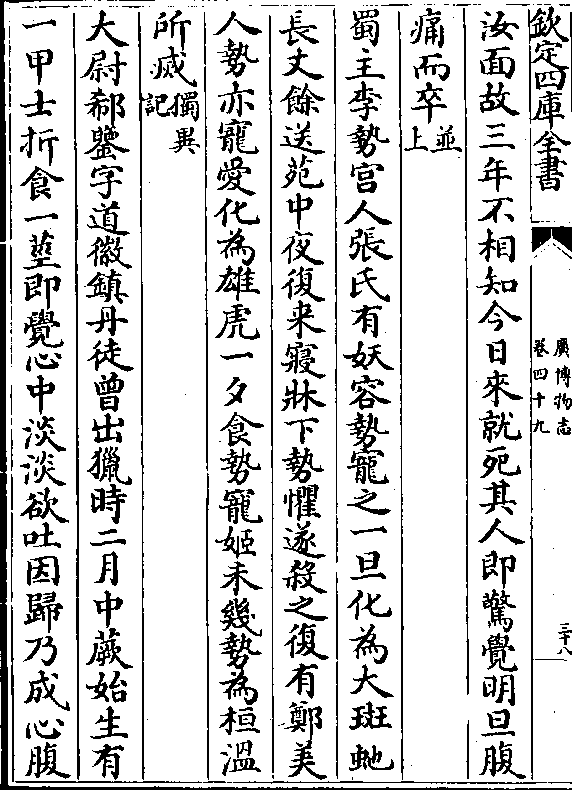 欽定四庫全書
廣博物志
卷四十九
三十八
汝面故三年不相知今日來就死其人即驚覺明旦腹
痛而卒並上
蜀主李勢宫人張氏有妖容勢寵之一旦化為大斑虵
長丈餘送苑中夜復来寢牀下勢懼遂殺之復有鄭美
人勢亦寵愛化為雄虎一夕食勢寵姬未幾勢為桓溫
所㓕獨異記
大尉郗鑒字道徽鎮丹徒曾出獵時二月中蕨始生有
一甲士折食一莖即覺心中淡淡欲吐因歸乃成心腹